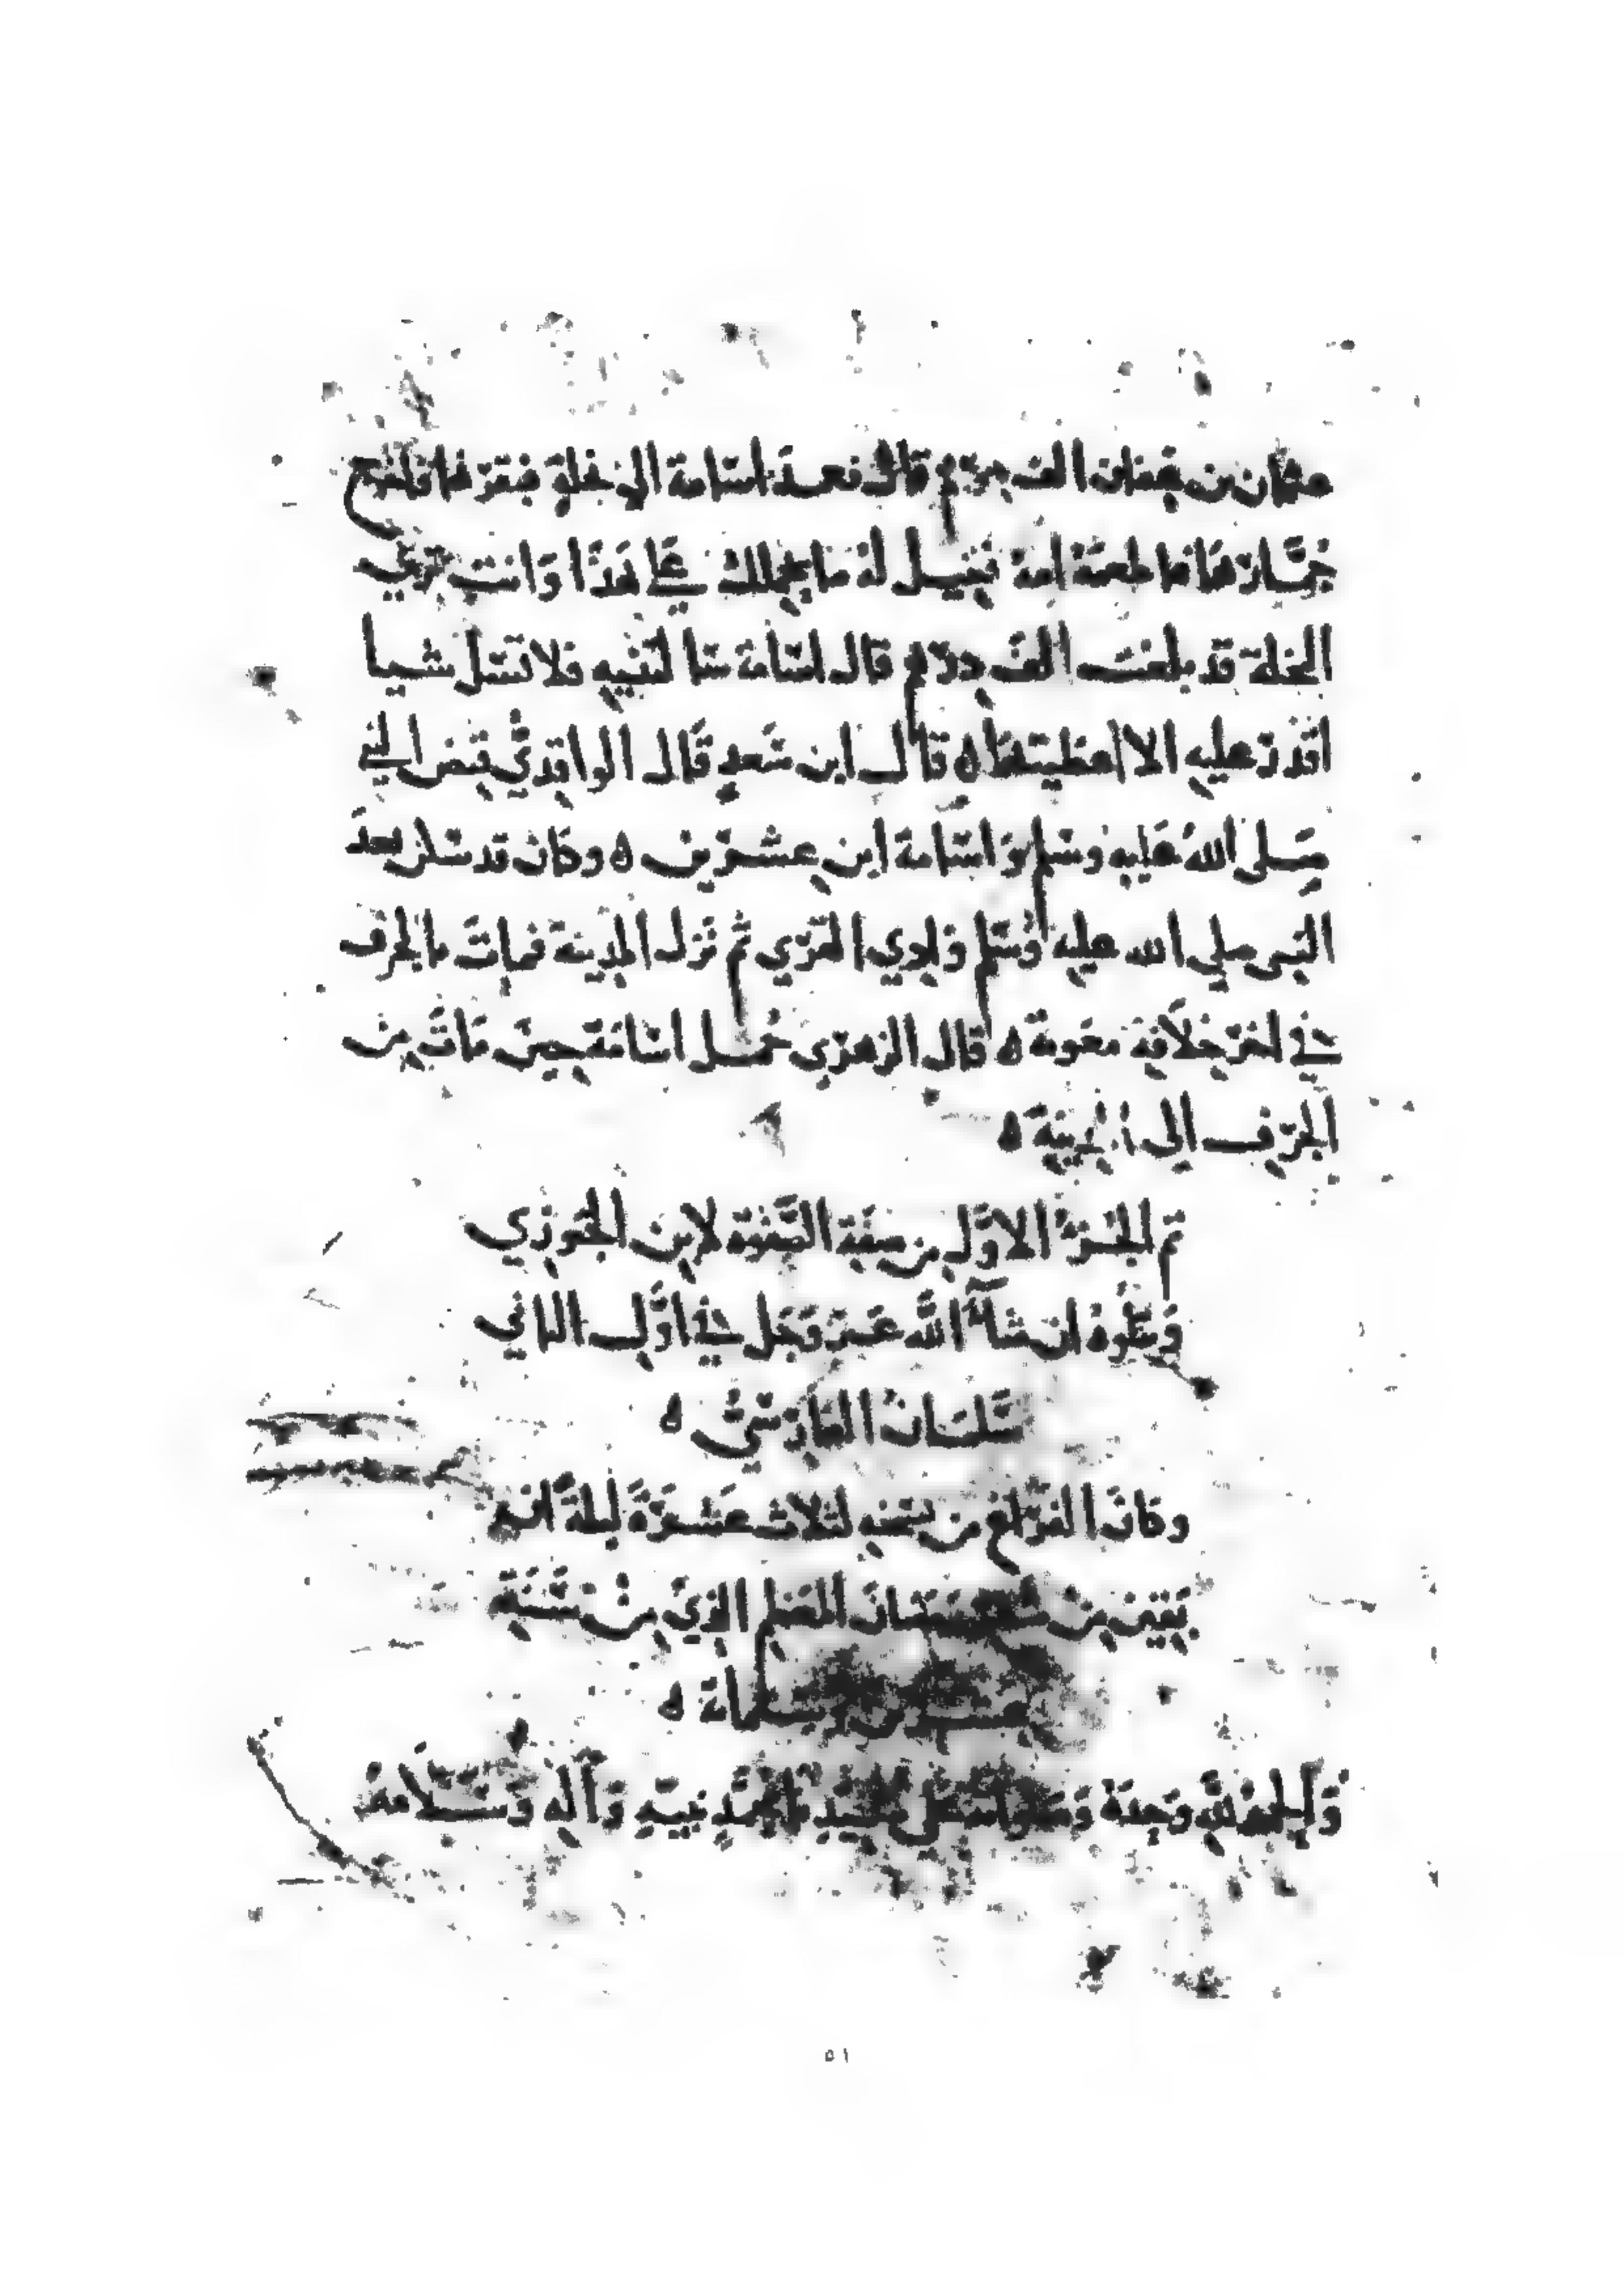 عثمان بن عفان الف درهم قال فعمد اسامة الى نخلة فنقرها فاخرج
جمارها فاطعمه امه فقيل له ما يحملك على هذا وانت ترى
النخلة قد بلغت الف درهم قال اسامة سالتنيه فلا تسل شيا
اقدر عليه الا اعطيتها ه قال ابن سعد قال الواقدي قبض النبي
صلى الله عليه وسلم واسامة ابن عشرين ه وكان قد سكن بعد
النبى صلى الله عليه وسلم وادي القرى ثم نزل المدينة فمات بالجرف
في اخر خلافة معوية ه قال الزهري حمل اسامة حين مات من
الجرف الى المدينة ه
تم الجزء الاول من صفة الصفوة لابن الجوزي
ويتلوه ان شآء الله عز وجل في اول الثاني
سلمان الفارسي ه
وكان الفراغ من نسخه لثلاث عشرة ليلة
بقين من شعبان المعظم الذي من سنة
وستمائة ه
والحمد لله وحده محمد نبيه وآله وسلامه
٥١